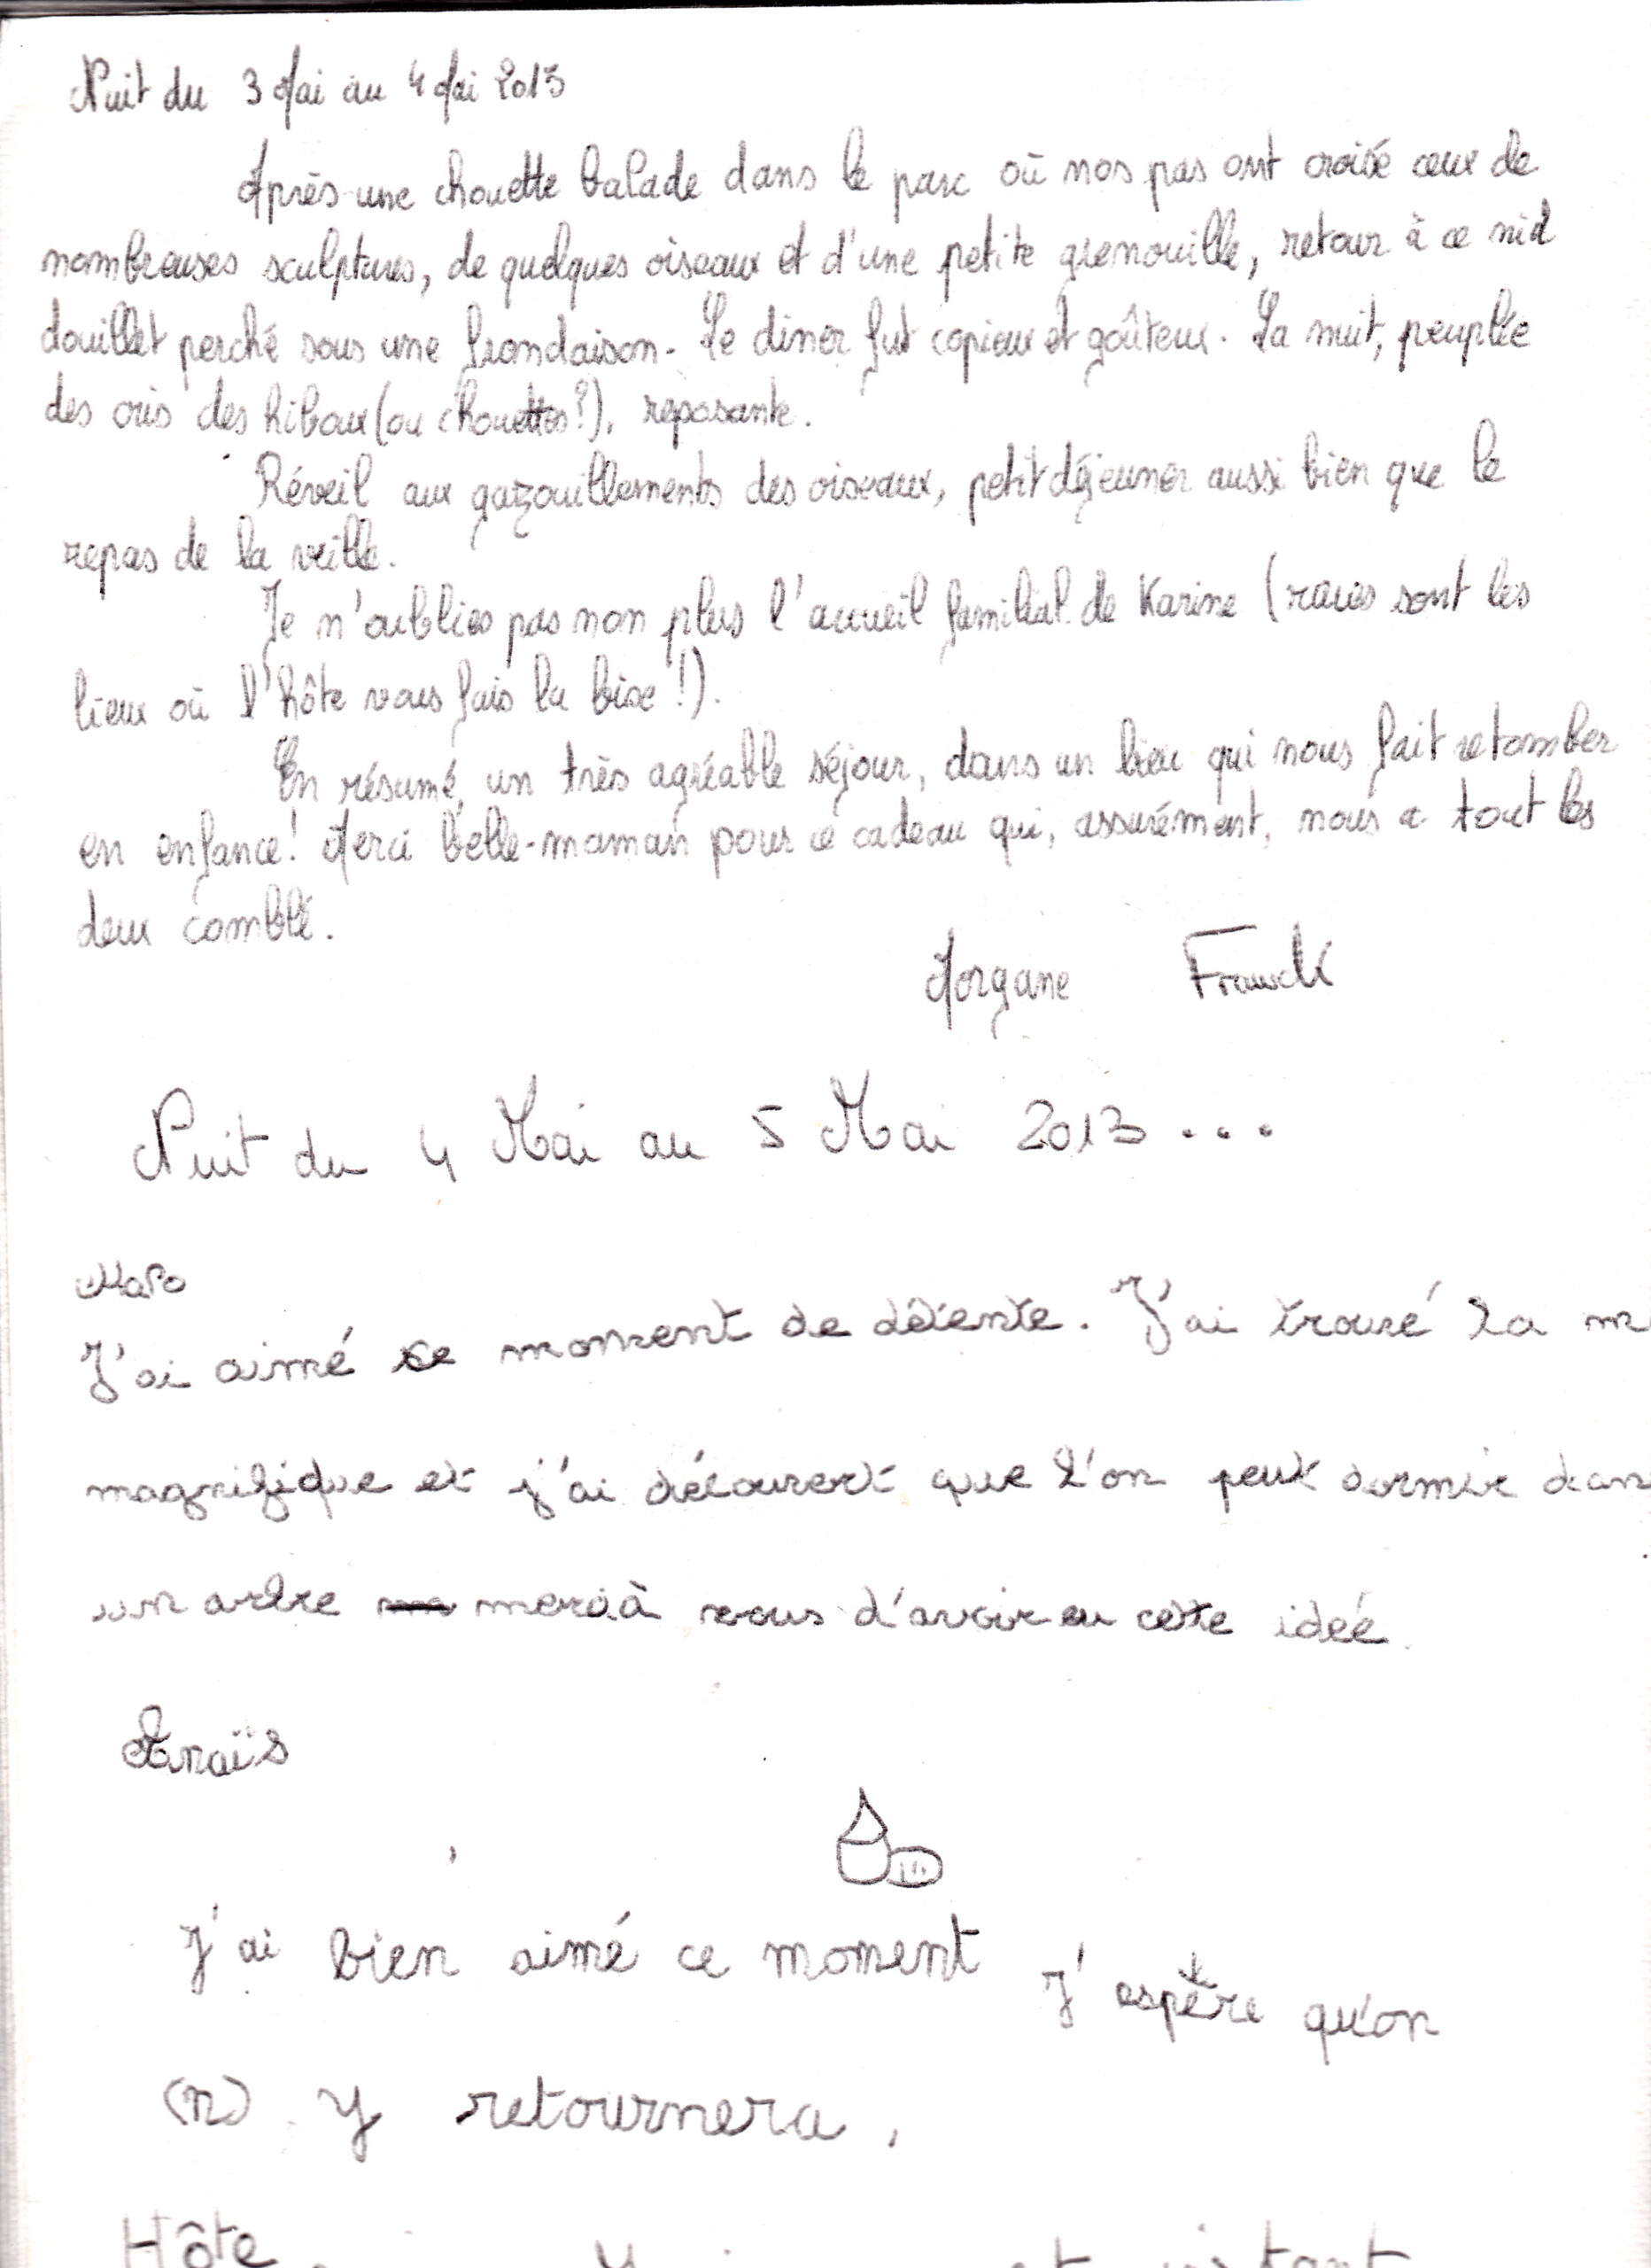 Nuit du 3 Mai au 4 Mai 2013
Après une chouette balade dans le parc où nos pas ont croisé ceux de
nombreuses sculptures, de quelques oiseaux et d'une petite grenouille, retour à ce nid
douillet perché sous une frondaison. Le diner fut copieux et goûteux. La nuit, peuplée
des cris des hiboux (ou chouettes?), reposante.
Réveil aux gazouillements des oiseaux, petit déjeuner aussi bien que le
repas de la veille.
Je n'oublies pas non plus l'accueil familial de Karine (rares sont les
lieux où l'hôte vous fais la bise!).
En résumé, un très agréable séjour, dans un lieu qui nous fait retomber
en enfance! Merci belle-maman pour ce cadeau qui, assurément, nous a tout les
deux comblé.
Morgane Franck
Nuit du 4 Mai au 5 Mai 2013...
Malo
J'ai aimé ce moment de détente. J'ai trouvé la
magnifique et j'ai découvert que l'on peut dormir dans
un arbre merci à vous d'avoir eu cette idée.
Anaïs
J'ai bien aimé ce moment j'espère qu'on
(n) y retournera.
Hôte